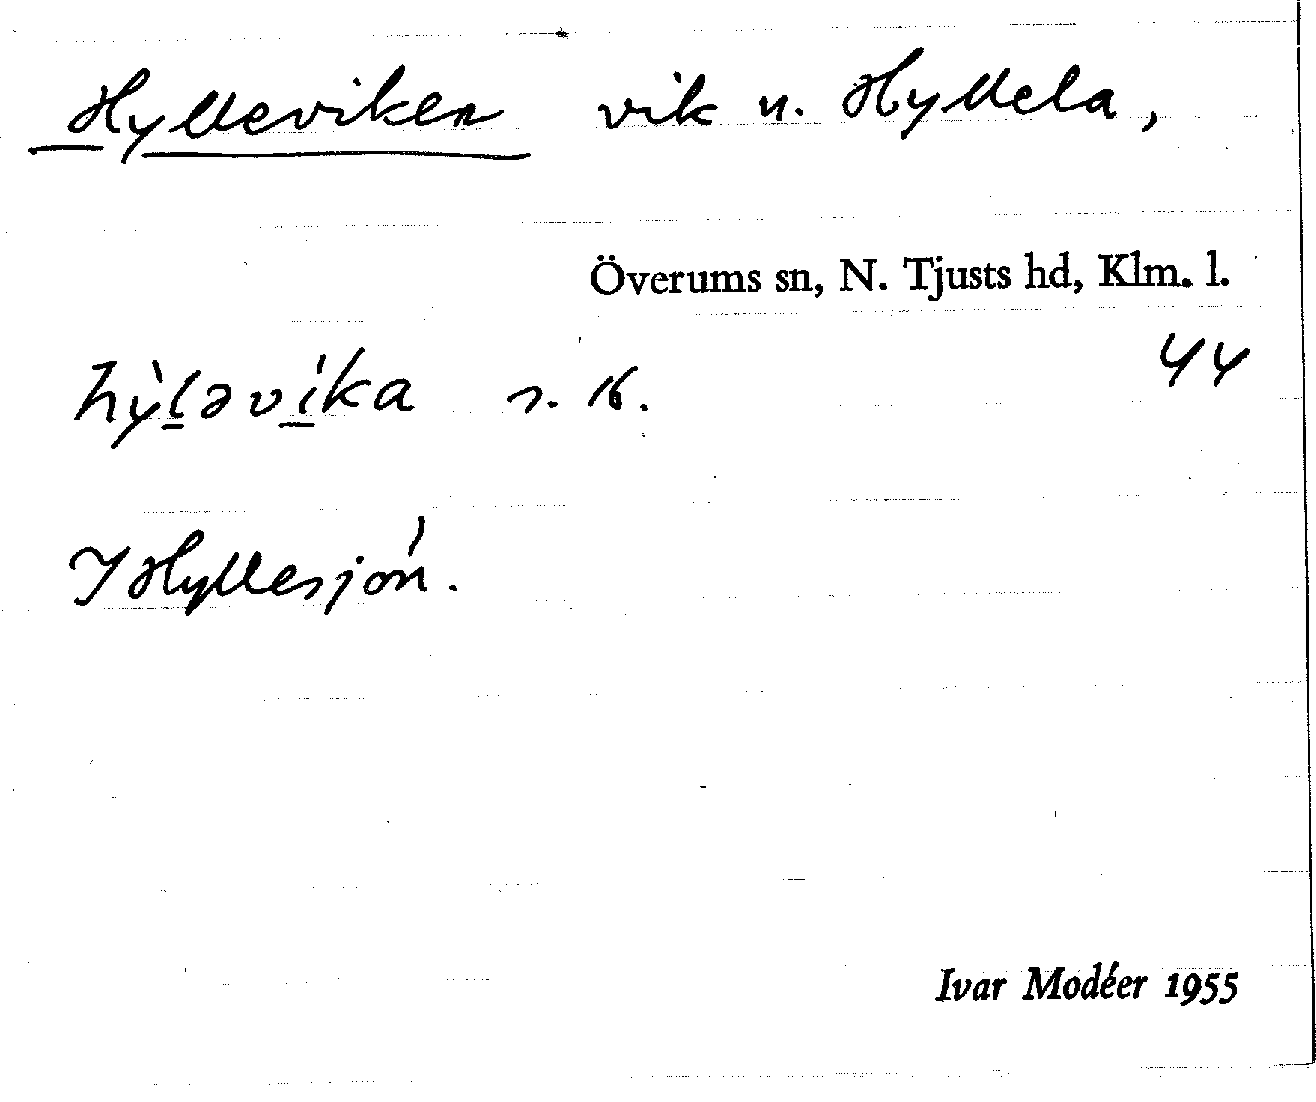 Hylleviken vik n. Hyllela,
Överums sn, N. Tjusts hd, Klm. l.
44
hỳl̲əví̲ka s. K.
I Hyllesjön.
Ivar Modéer 1955